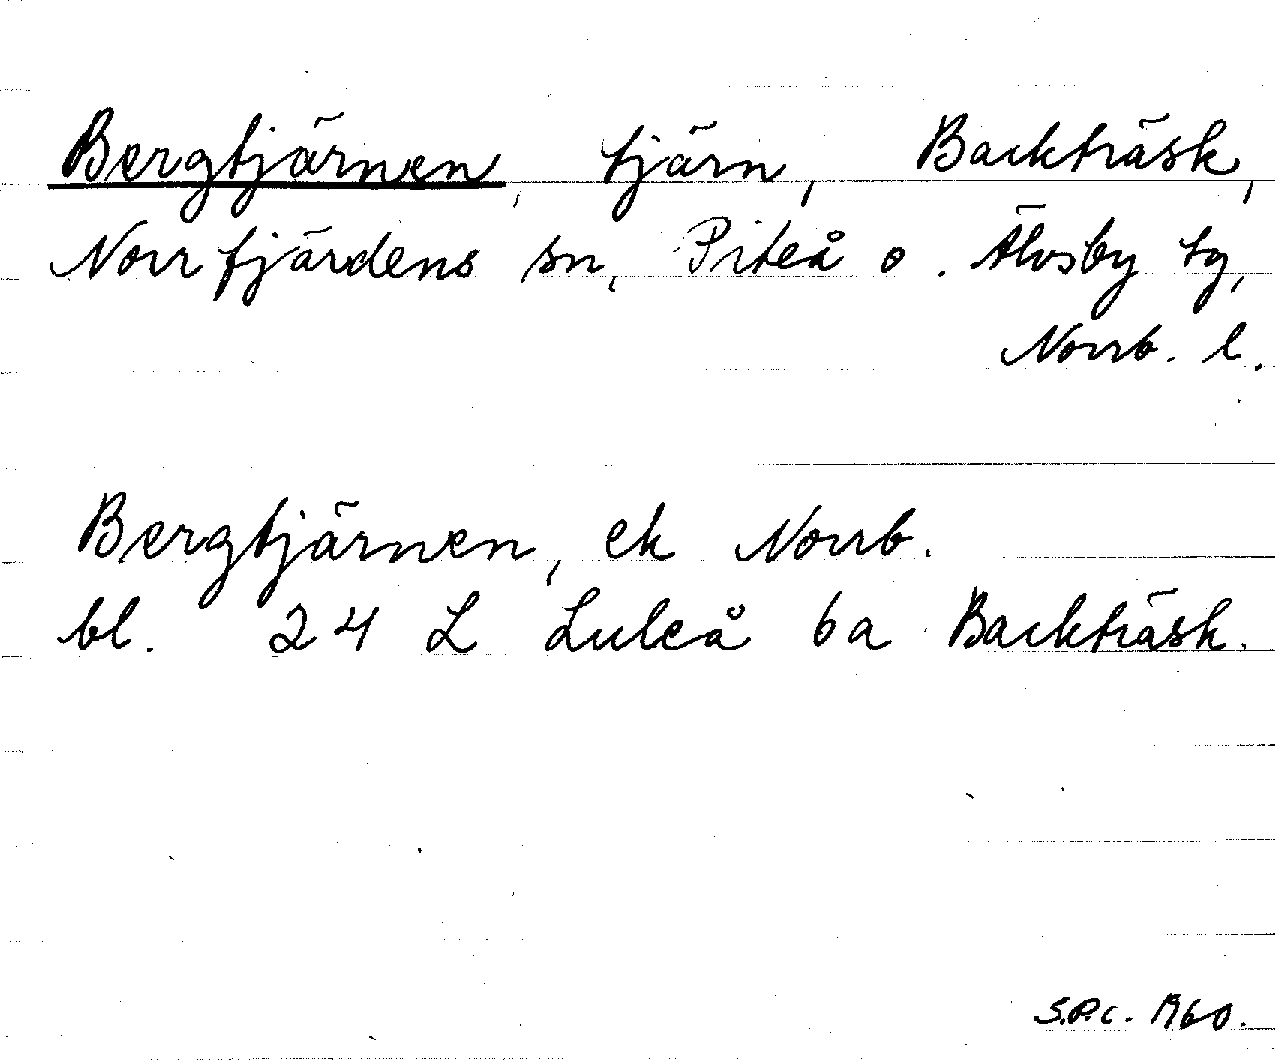 Bergtjärnen, tjärn, Backträsk,
Norrfjärdens sn, Piteå o. Älvsby tg,
Norrb. l.
Bergtjärnen, ek Norrb.
bl. 24 L Luleå 6a Backträsk.
S.P.C. 1960.